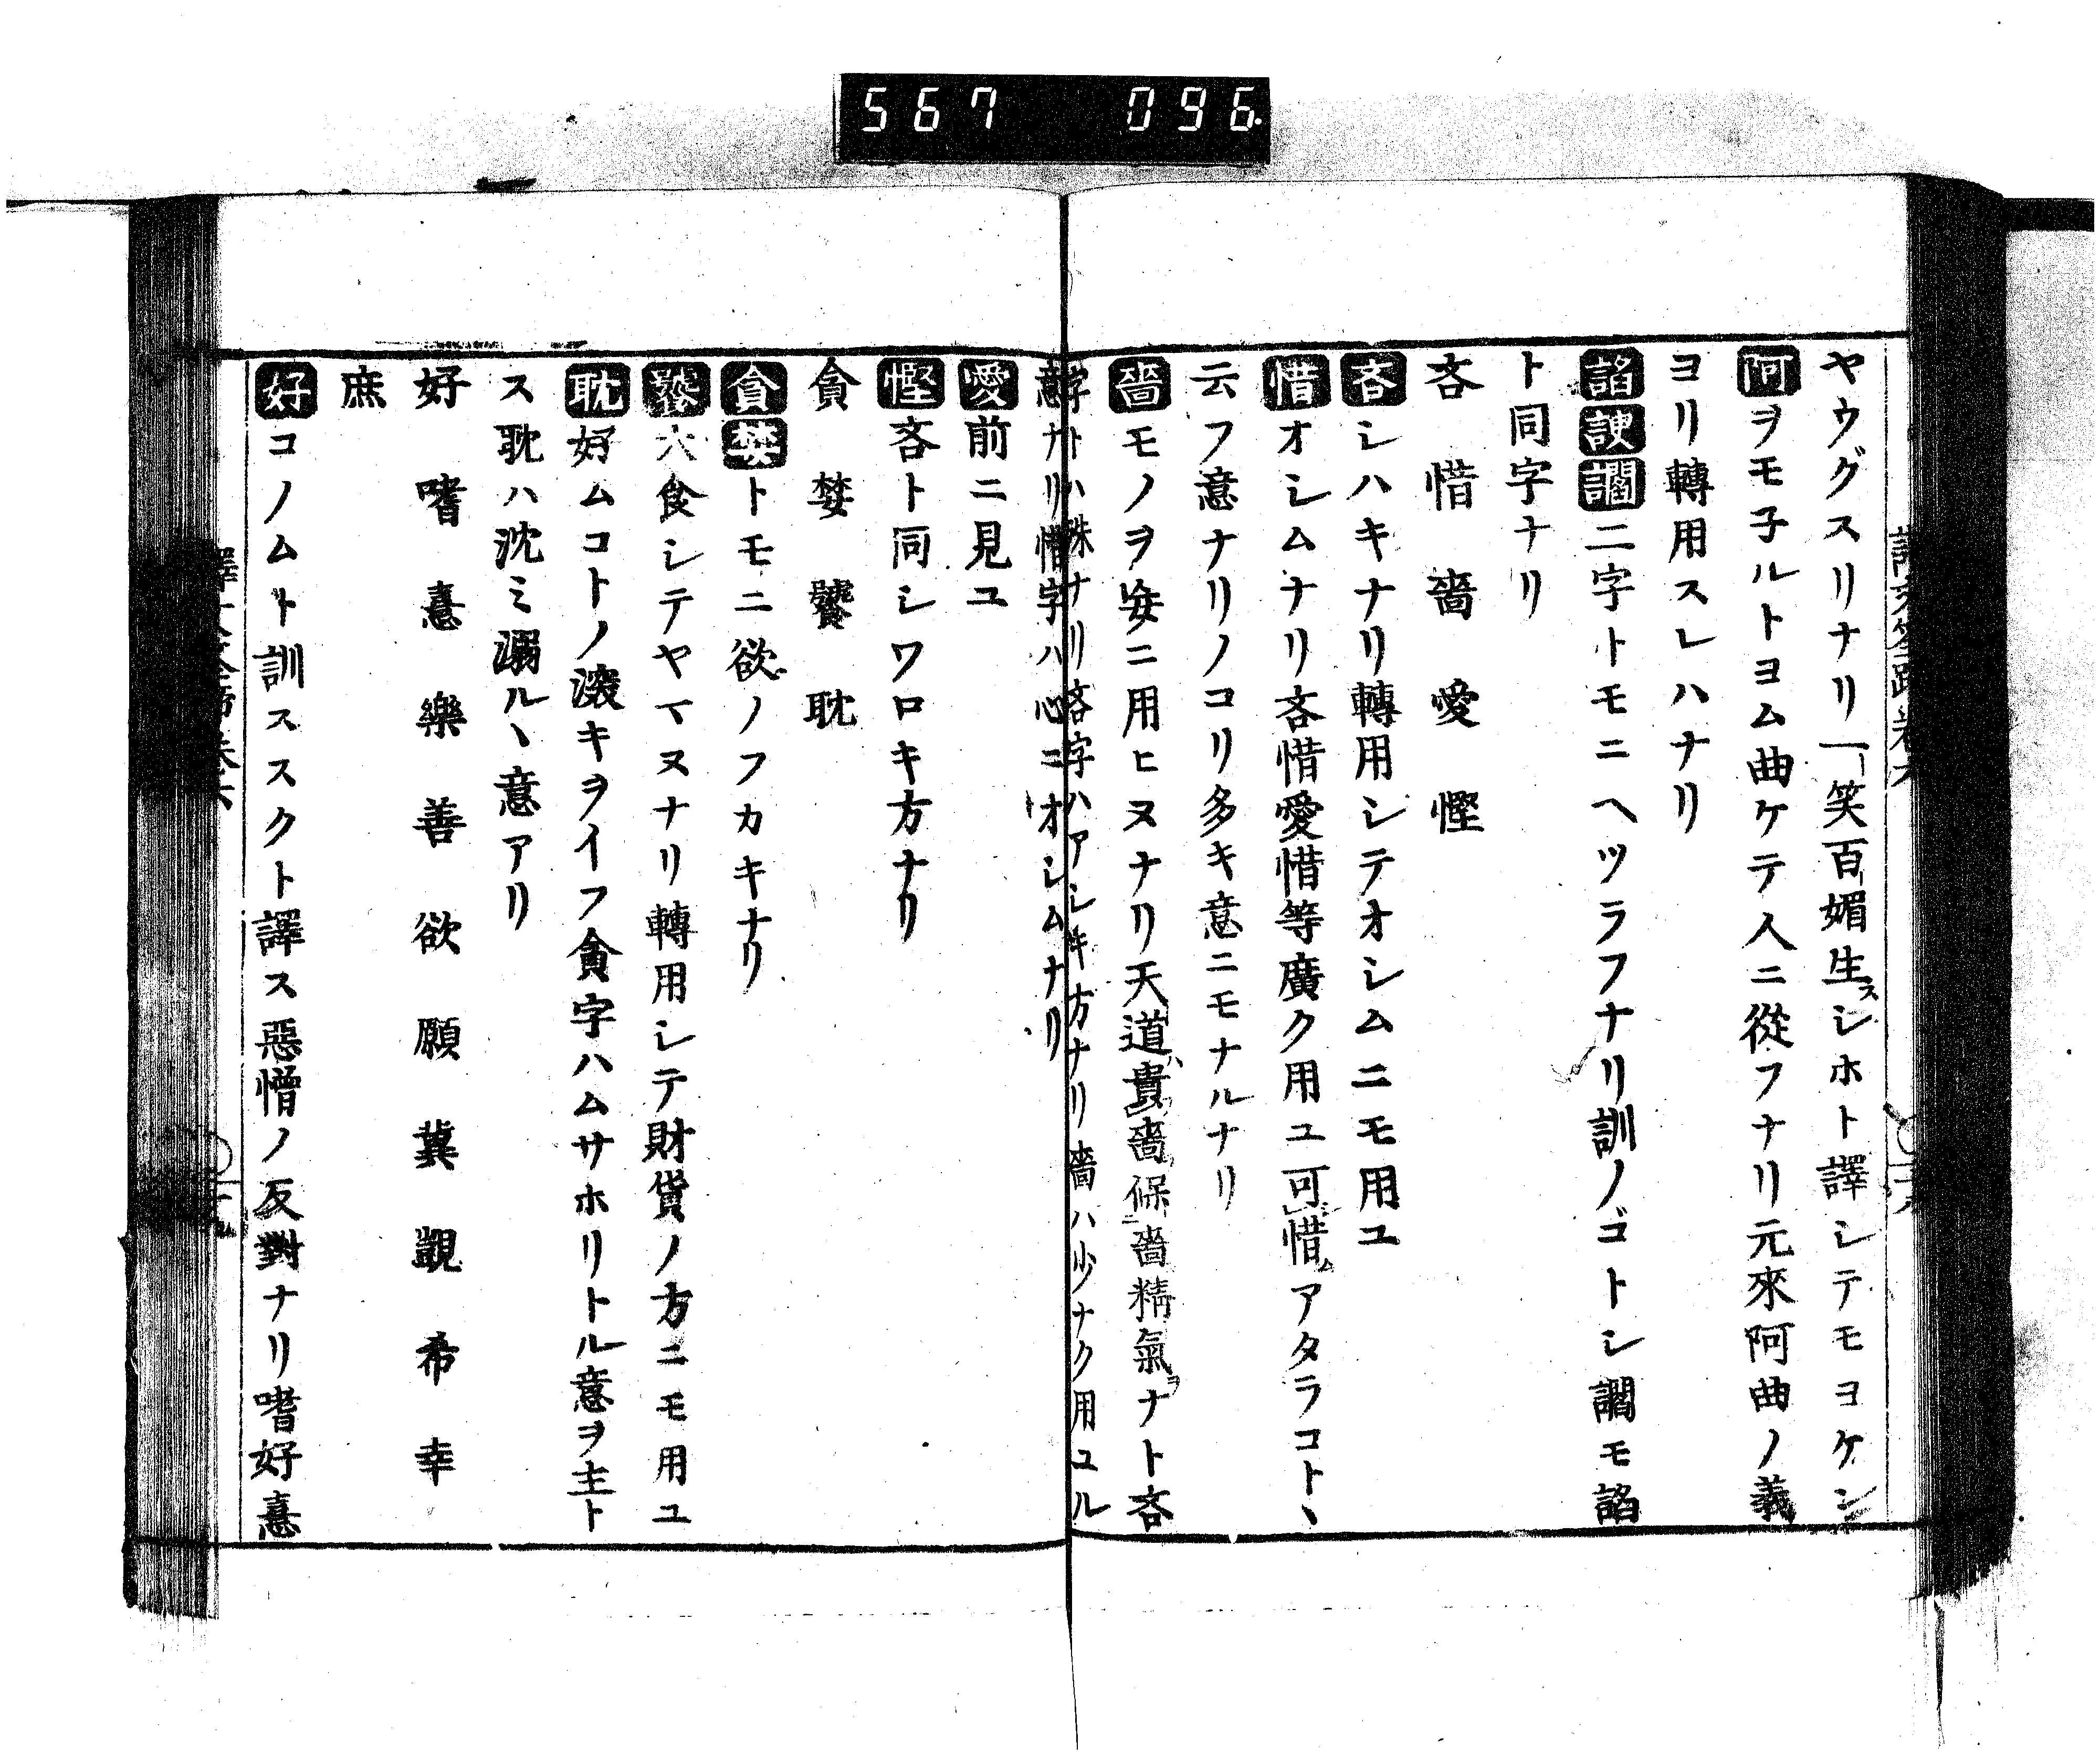 567 096
ヤウグスリナリ一笑百媚生スシホト譯シテモヨケシ
阿ヲモ子ルトヨム曲ケテ人ニ從フナリ元來阿曲ノ義
ヨリ轉用スレハナリ
諂諛讇二字トモニヘツラフナリ訓ノゴトシ讇モ諂
ト同字ナリ
吝惜嗇愛慳
吝シハキナリ轉用シテオシムニモ用ユ
惜オシムナリ吝惜愛惜等廣ク用ユ可惜アタラコトヽ
云フ意ナリノコリ多キ意ニモナルナリ
嗇モノヲ妄ニ用ヒヌナリ天道ハ貴嗇保嗇精氣ヲナト吝
字トハ殊ナリ吝字ハアシキ方ナリ嗇ハ少ナク用ユル
意ナリ惜字ハ心ニオシムナリ
愛前ニ見ユ
慳吝ト同シワロキ方ナリ
貪婪饕耽
貪婪トモニ欲ノフカキナリ
饕大食シテヤマヌナリ轉用シテ財貨ノ方ニモ用ユ
耽好ムコトノ深キヲイフ貪字ハムサホリトル意ヲ主ト
ス耽ハ沈ミ溺ルヽ意アリ
好嗜憙樂善欲願冀覬希幸
庶
好コノムト訓ススクト譯ス惡憎ノ反對ナリ嗜好憙